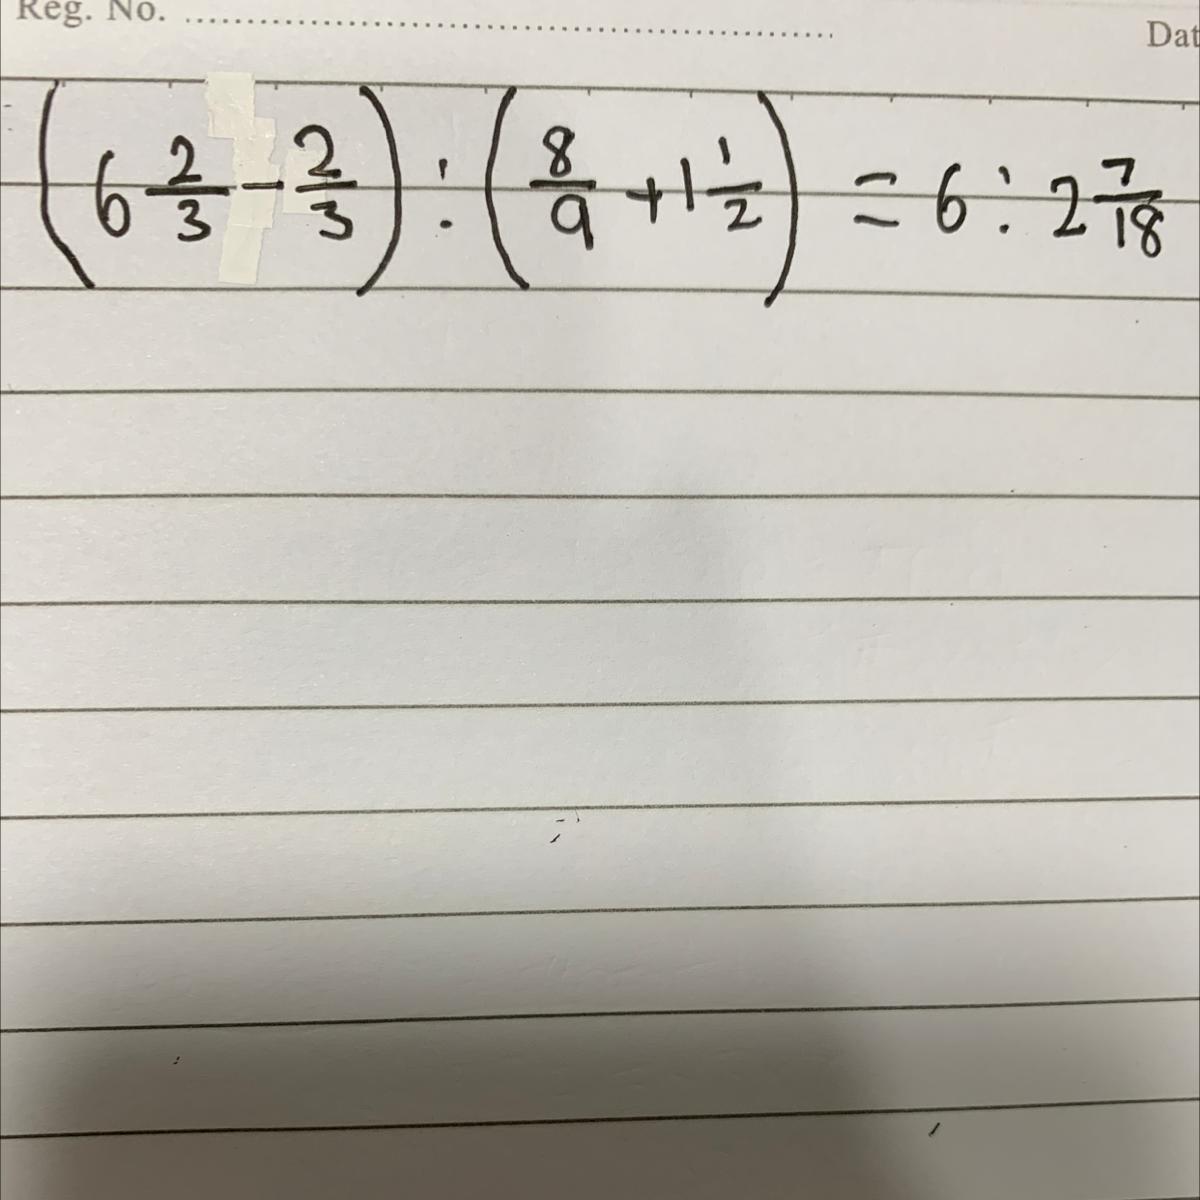 Reg. No. ........................................................ Dat
(6 2/3 - 2/3) : (8/9 + 1 1/2) = 6 : 2 7/18